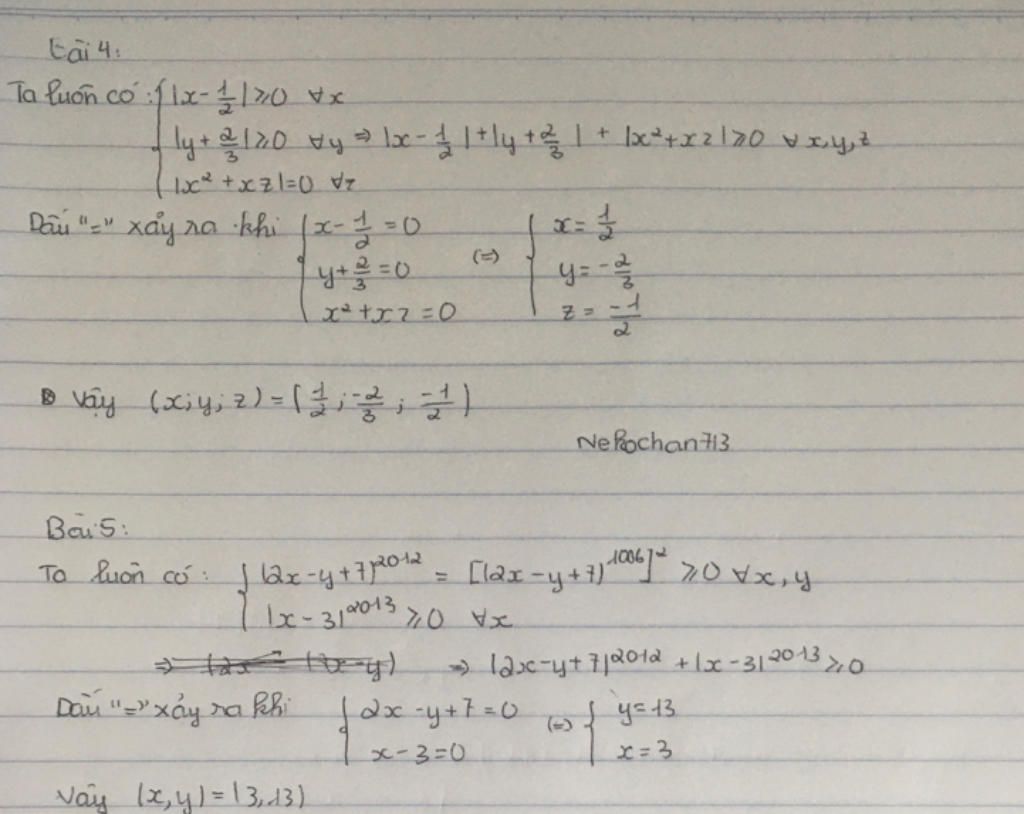 Bài 4:
Ta luôn có: { |x - 1/2| ≥ 0 ∀x
|y + 2/3| ≥ 0 ∀y ⇒ |x - 1/2| + |y + 2/3| + |x² + xz| ≥ 0 ∀ x,y,z
|x² + xz| = 0 ∀z
Dấu "=" xảy ra khi { x - 1/2 = 0 (=) { x = 1/2
y + 2/3 = 0 y = -2/3
x² + xz = 0 z = -1/2
Vậy (x; y; z) = (1/2; -2/3; -1/2)
Nekochan713
Bài 5:
Ta luôn có: { (2x - y + 7)^2012 = [(2x - y + 7)^1006]² ≥ 0 ∀x, y
|x - 3|^2013 ≥ 0 ∀x
⇒ |2x - y + 7|^2012 + |x - 3|^2013 ≥ 0
Dấu "=" xảy ra khi { 2x - y + 7 = 0 (=) { y = 13
x - 3 = 0 x = 3
Vậy (x, y) = (3, 13)